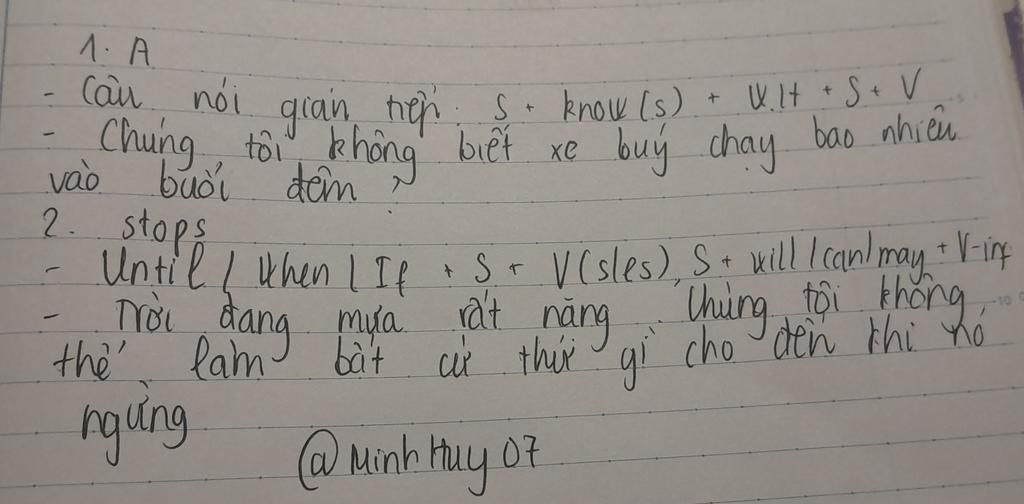 1. A
- Câu nói gián tiếp: S + know(s) + W.H + S + V
- Chúng tôi không biết xe buý chạy bao nhiêu
vào buổi đêm?
2. stops
- Until / When / If + S + V(s/es), S + will / can / may + V-inf
- Trời đang mưa rất nặng. Chúng tôi không
thể làm bất cứ thứ gì cho đến khi nó
ngừng
@ Minh Huy 07